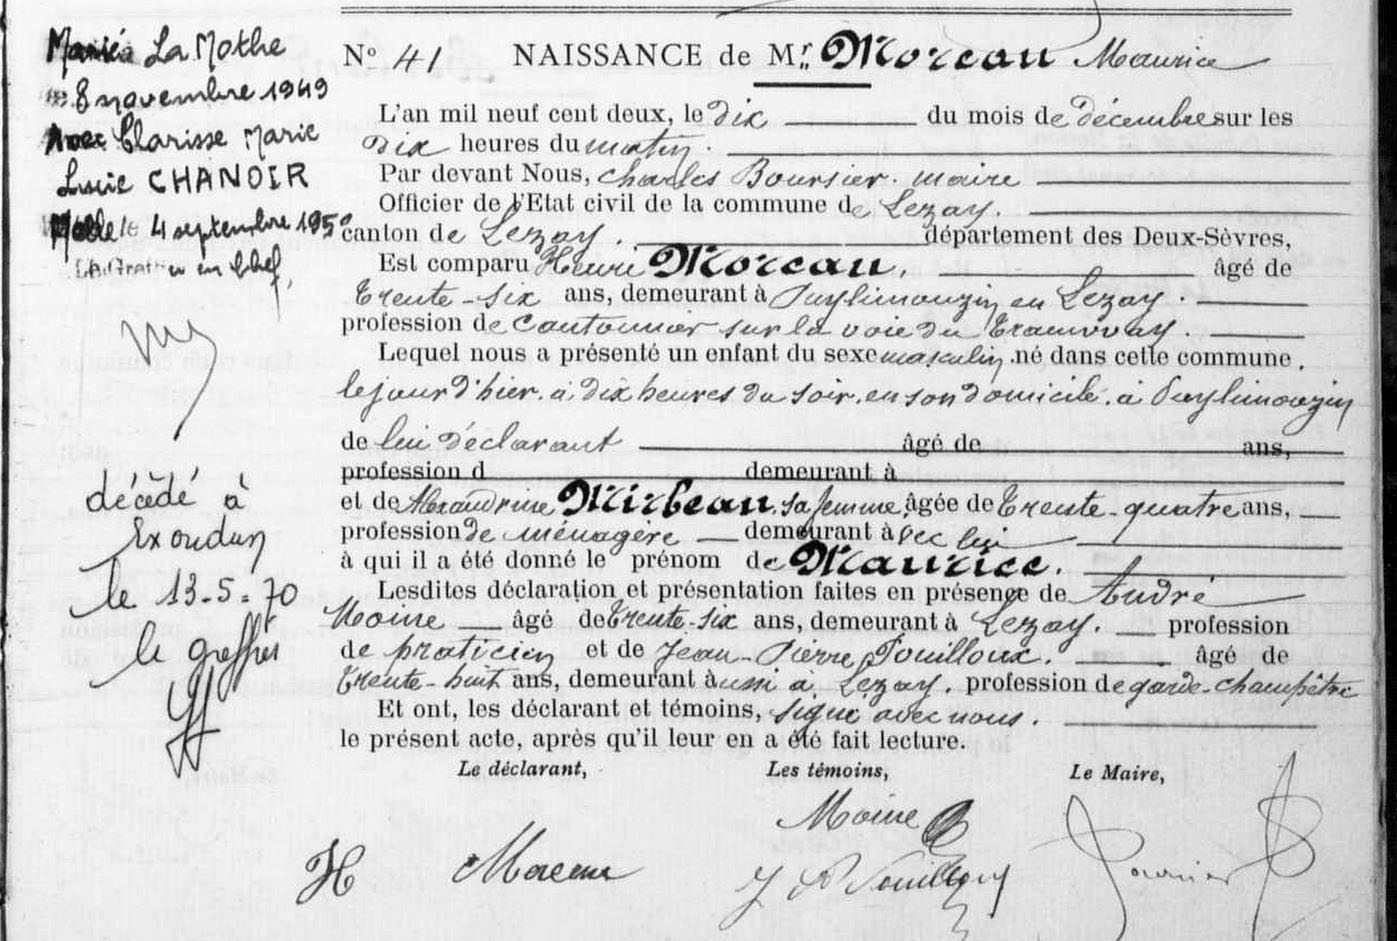 Marié à La Mothe
le 8 novembre 1949
Avec Clarisse Marie
Lucie CHANOIR
Melle le 4 septembre 1950
Le Greffier en Chef,
décédé à
Exoudun
le 13-5-70
le greffier
N° 41 NAISSANCE de Mr. Moreau Maurice
L'an mil neuf cent deux, le dix du mois de décembre sur les
dix heures du matin.
Par devant Nous, Charles Boursier. maire
Officier de l'Etat civil de la commune de Lezay.
canton de Lezay. département des Deux-Sèvres,
Est comparu Henri Moreau, âgé de
Trente-six ans, demeurant à Puylimouzin en Lezay.
profession de Cantonnier sur la voie du Tramway.
Lequel nous a présenté un enfant du sexe masculin, né dans cette commune.
le jour d'hier. à dix heures du soir. en son domicile. à Puylimouzin
de lui déclarant âgé de ans,
profession d demeurant à
et de Alexandrine Mirbeau, sa femme, âgée de Trente-quatre ans,
profession de ménagère demeurant avec lui
à qui il a été donné le prénom de Maurice.
Lesdites déclaration et présentation faites en présence de André
Moine âgé de Trente-six ans, demeurant à Lezay. profession
de praticien et de Jean-Pierre Pouilloux. âgé de
Trente-huit ans, demeurant aussi à Lezay. profession de garde-champêtre
Et ont, les déclarant et témoins, signé avec nous.
le présent acte, après qu'il leur en a été fait lecture.
Le déclarant, Les témoins, Le Maire,
Moine
H Moreau
J P Pouilloux